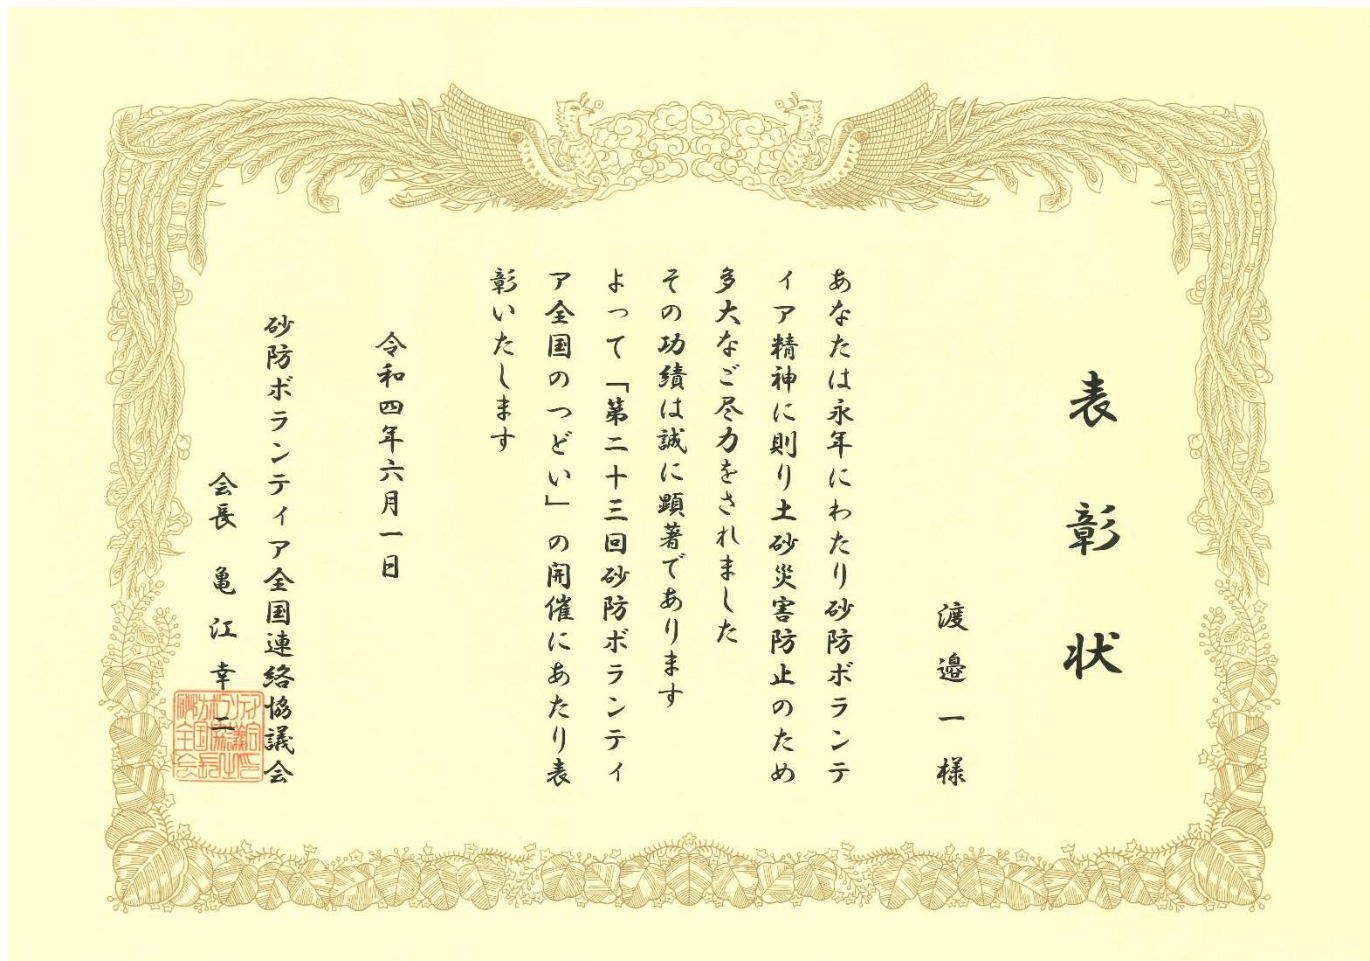 表彰状
渡邉一様
あなたは永年にわたり砂防ボランテ
ィア精神に則り土砂災害防止のため
多大なご尽力をされました
その功績は誠に顕著であります
よって「第二十三回砂防ボランティ
ア全国のつどい」の開催にあたり表
彰いたします
令和四年六月一日
砂防ボランティア全国連絡協議会
会長 亀江幸二